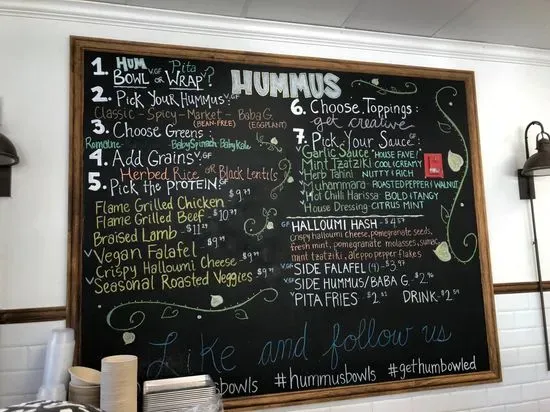 1. HUM Pita
BOWL V.GF or WRAP V?
HUMMUS
2. Pick Your HUMMUS: V.GF
Classic - Spicy - Market - Baba G.
(BEAN-FREE) (EGGPLANT)
3. Choose Greens:
Romaine Baby Spinach Baby Kale
4. Add Grains V.GF
Herbed Rice or Black Lentils
5. Pick the Protein:
Flame Grilled Chicken $9.99
Flame Grilled Beef - $10.99
Braised Lamb - $11.99
V Vegan Falafel - $9.99
Crispy Halloumi Cheese - $9.99
V Seasonal Roasted Veggies - $9.99
6. Choose Toppings: GF
get creative
7. Pick Your Sauce: GF
Garlic Sauce "HOUSE FAVE!"
Mint Tzatziki COOL & CREAMY
Herb Tahini NUTTY & RICH
Muhammara - ROASTED PEPPER & WALNUT
Hot Chilli Harissa BOLD & TANGY
House Dressing - CITRUS MINT
GF HALLOUMI HASH -
crispy halloumi cheese, pomegranate seeds,
fresh mint, pomegranate molasses, sumac,
mint tzatziki, aleppo pepper flakes
V.GF SIDE FALAFEL (4) - $3.97
V.GF SIDE HUMMUS/BABA G. - $2.96
V PITA FRIES - DRINK - $2.59
Like and follow us
#hummusbowls #gethumbowled